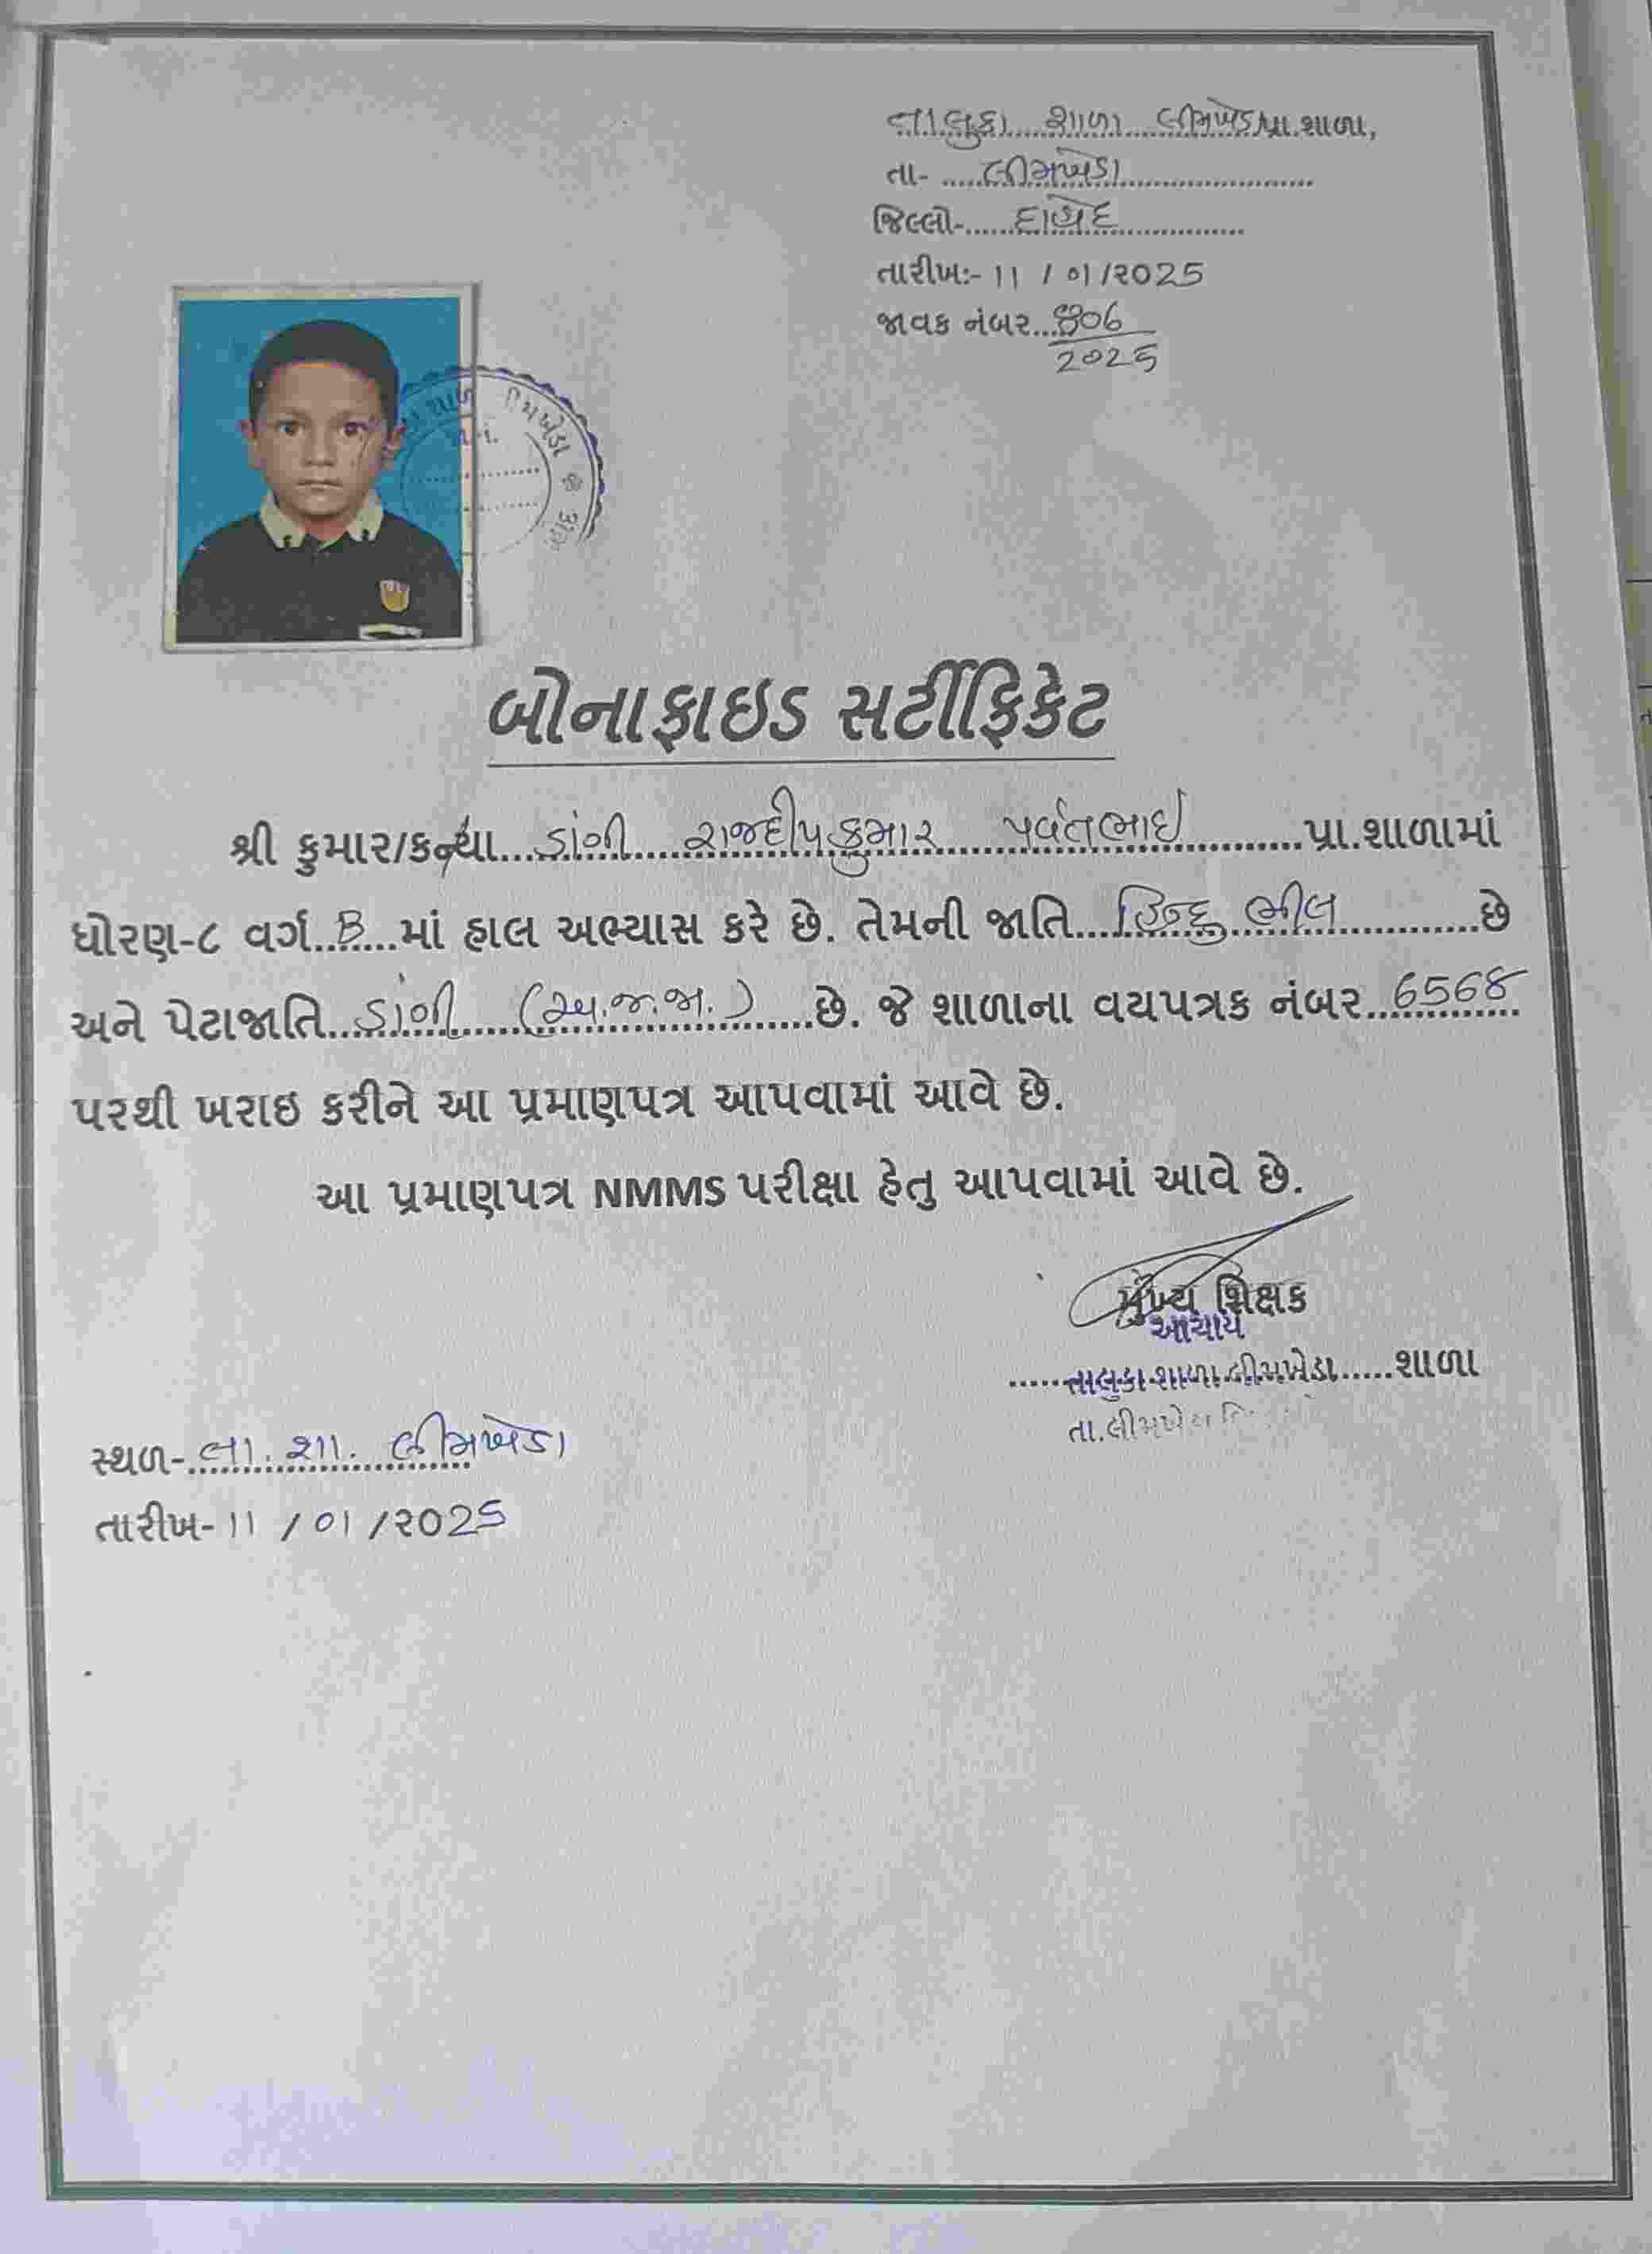 તાલુકા શાળા લીમખેડા પ્રા.શાળા,
તા- લીમખેડા
જિલ્લો- દાહોદ
તારીખ:- 11 / 01 /૨૦25
જાવક નંબર... 806
2025
બોનાફાઇડ સર્ટીફિકેટ
શ્રી કુમાર/કન્યા... ડાંગી રાજદીપકુમાર પર્વતભાઈ ...પ્રા.શાળામાં
ધોરણ-૮ વર્ગ..B....માં હાલ અભ્યાસ કરે છે. તેમની જાતિ... હિન્દુ ભીલ ...છે
અને પેટાજાતિ... ડાંગી (અ.જ.જા.) ...છે. જે શાળાના વયપત્રક નંબર.. 6568
પરથી ખરાઇ કરીને આ પ્રમાણપત્ર આપવામાં આવે છે.
આ પ્રમાણપત્ર NMMS પરીક્ષા હેતુ આપવામાં આવે છે.
મુખ્ય શિક્ષક
આચાર્ય
......તાલુકા શાળા લીમખેડા.....શાળા
તા.લીમખેડા
સ્થળ- તા. શા. લીમખેડા
તારીખ- 11 / 01 /૨૦25